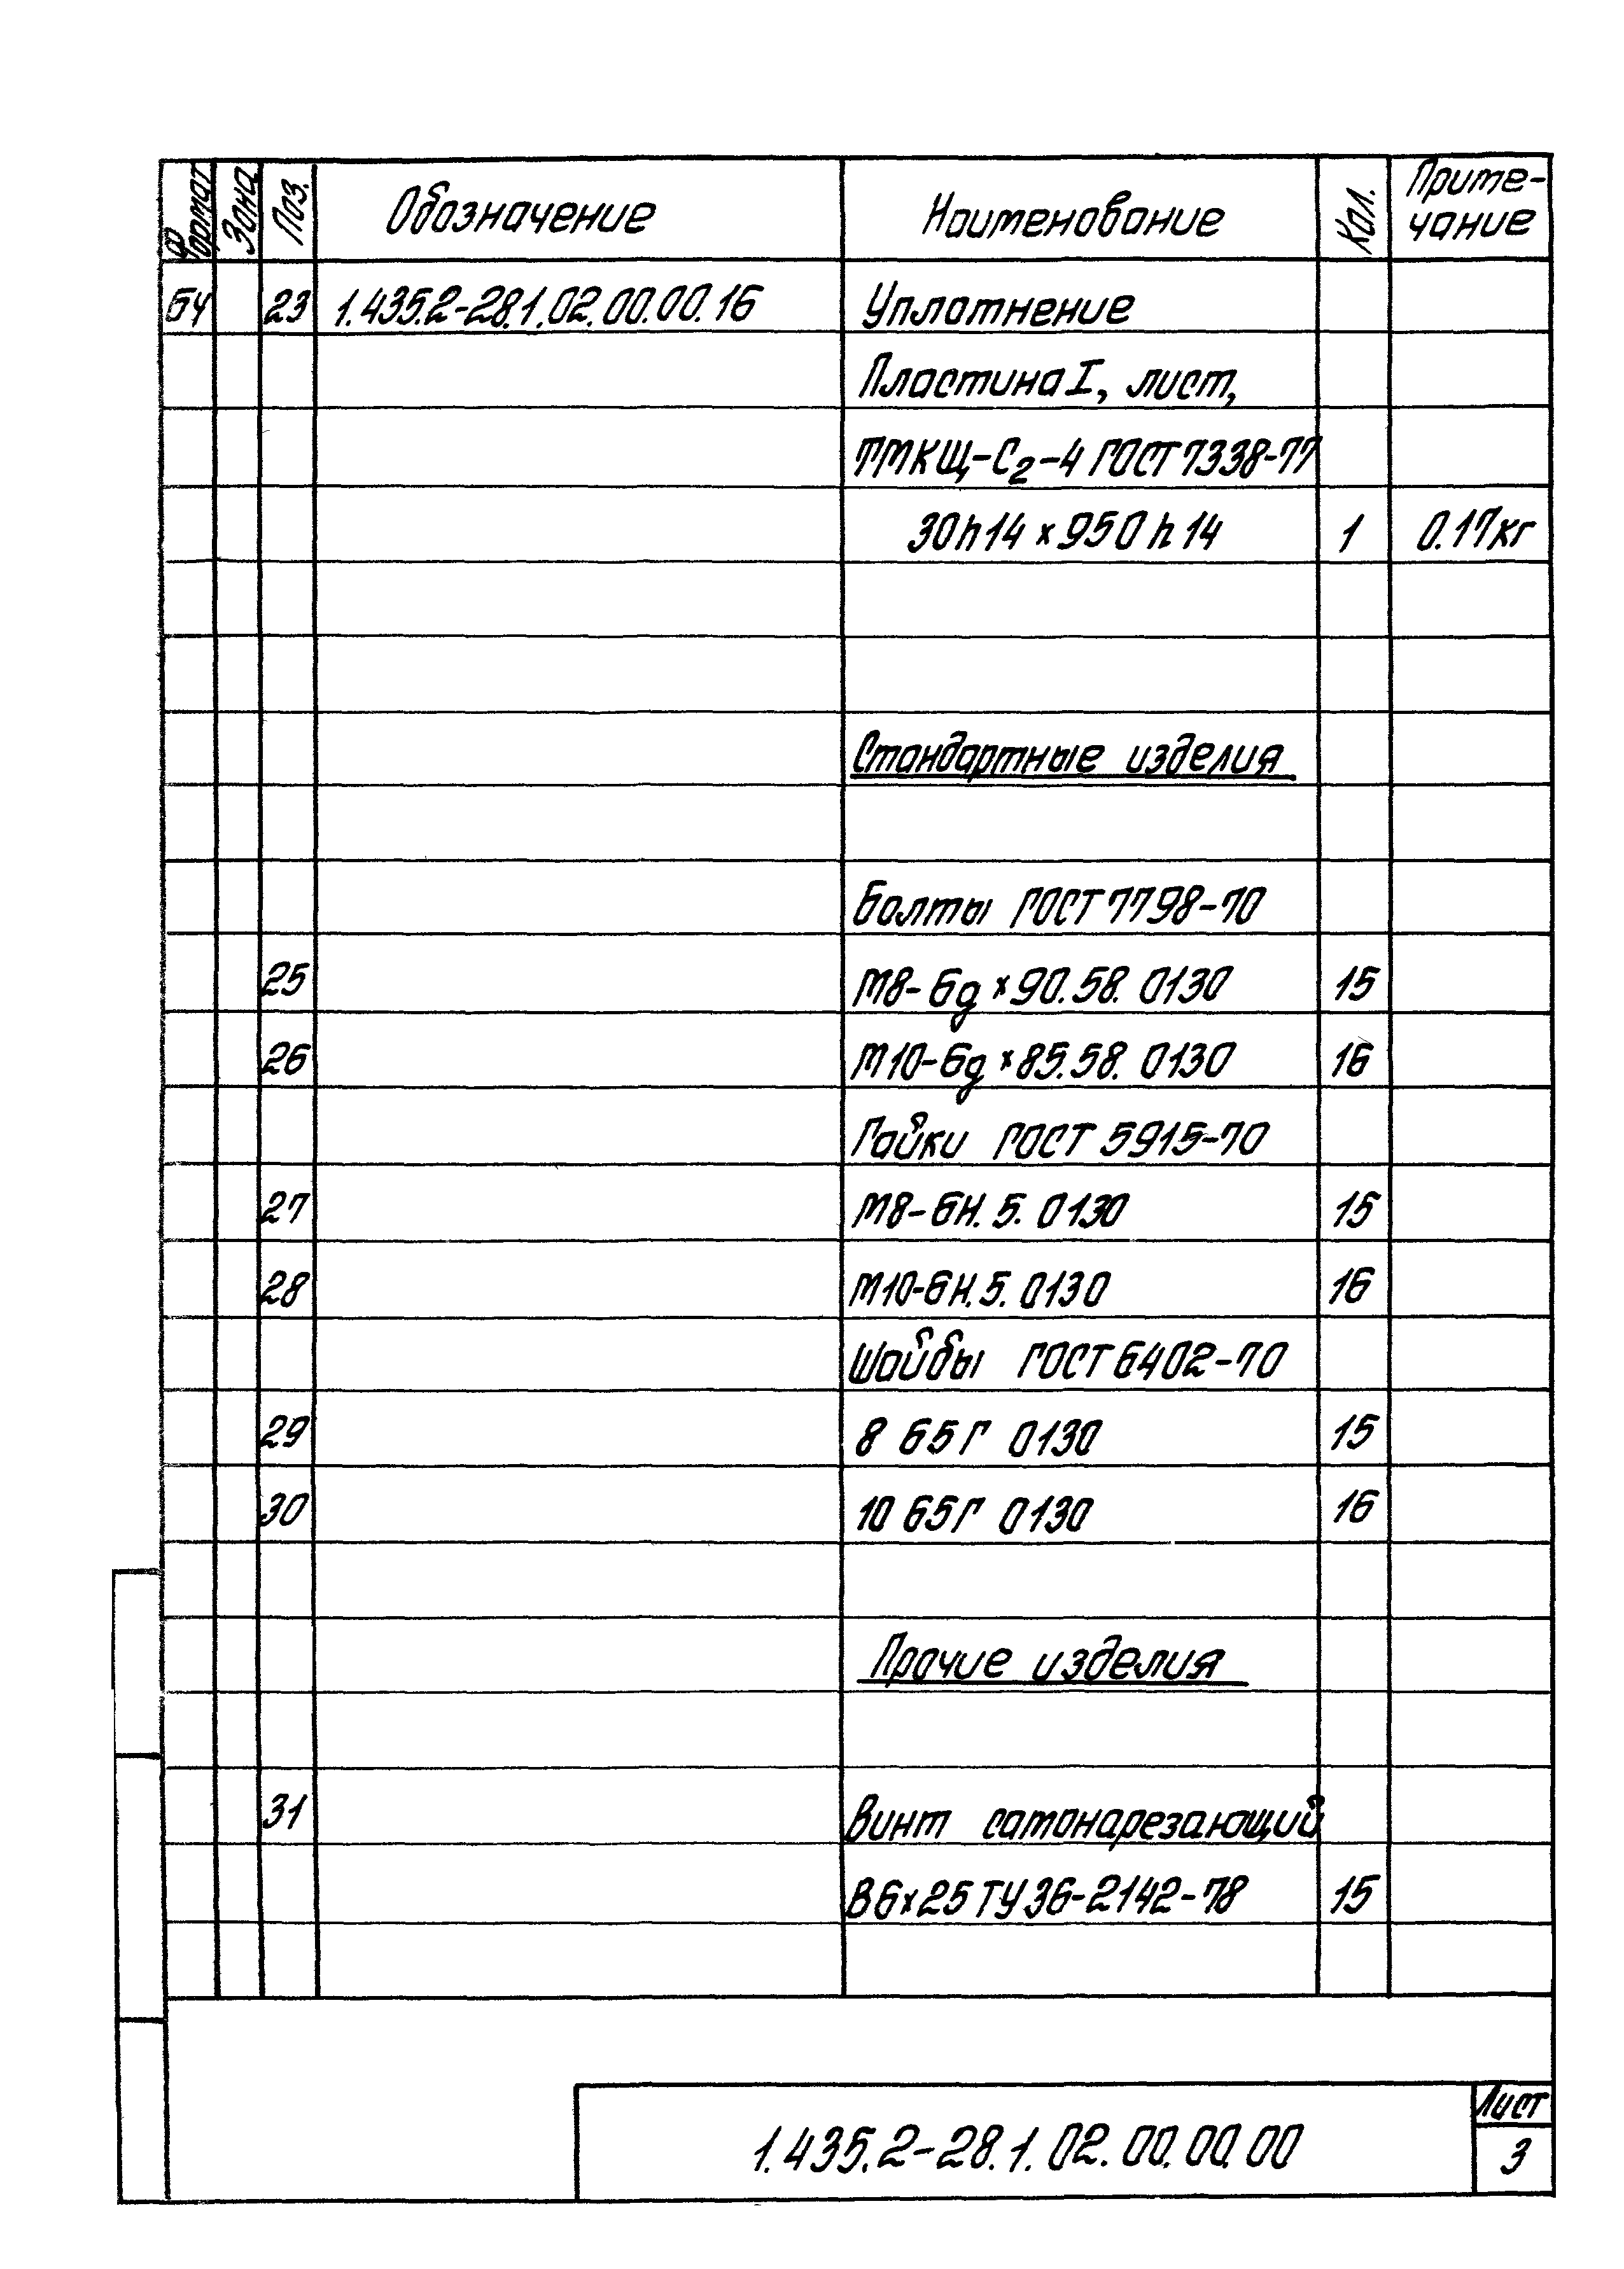 Формат Зона Поз. Обозначение Наименование Кол. Приме-
чание
БЧ 23 1.435.2-28.1.02.00.00.16 Уплотнение
Пластина I, лист,
ТМКЩ-С2-4 ГОСТ 7338-77
30h14×950h14 1 0.17кг
Стандартные изделия
Болты ГОСТ 7798-70
25 М8-6g×90.58.0130 15
26 М10-6g×85.58.0130 16
Гайки ГОСТ 5915-70
27 М8-6Н.5.0130 15
28 М10-6Н.5.0130 16
Шайбы ГОСТ 6402-70
29 8 65Г 0130 15
30 10 65Г 0130 16
Прочие изделия
31 Винт самонарезающий
В6×25 ТУ 36-2142-78 15
1.435.2-28.1.02.00.00.00
Лист
3